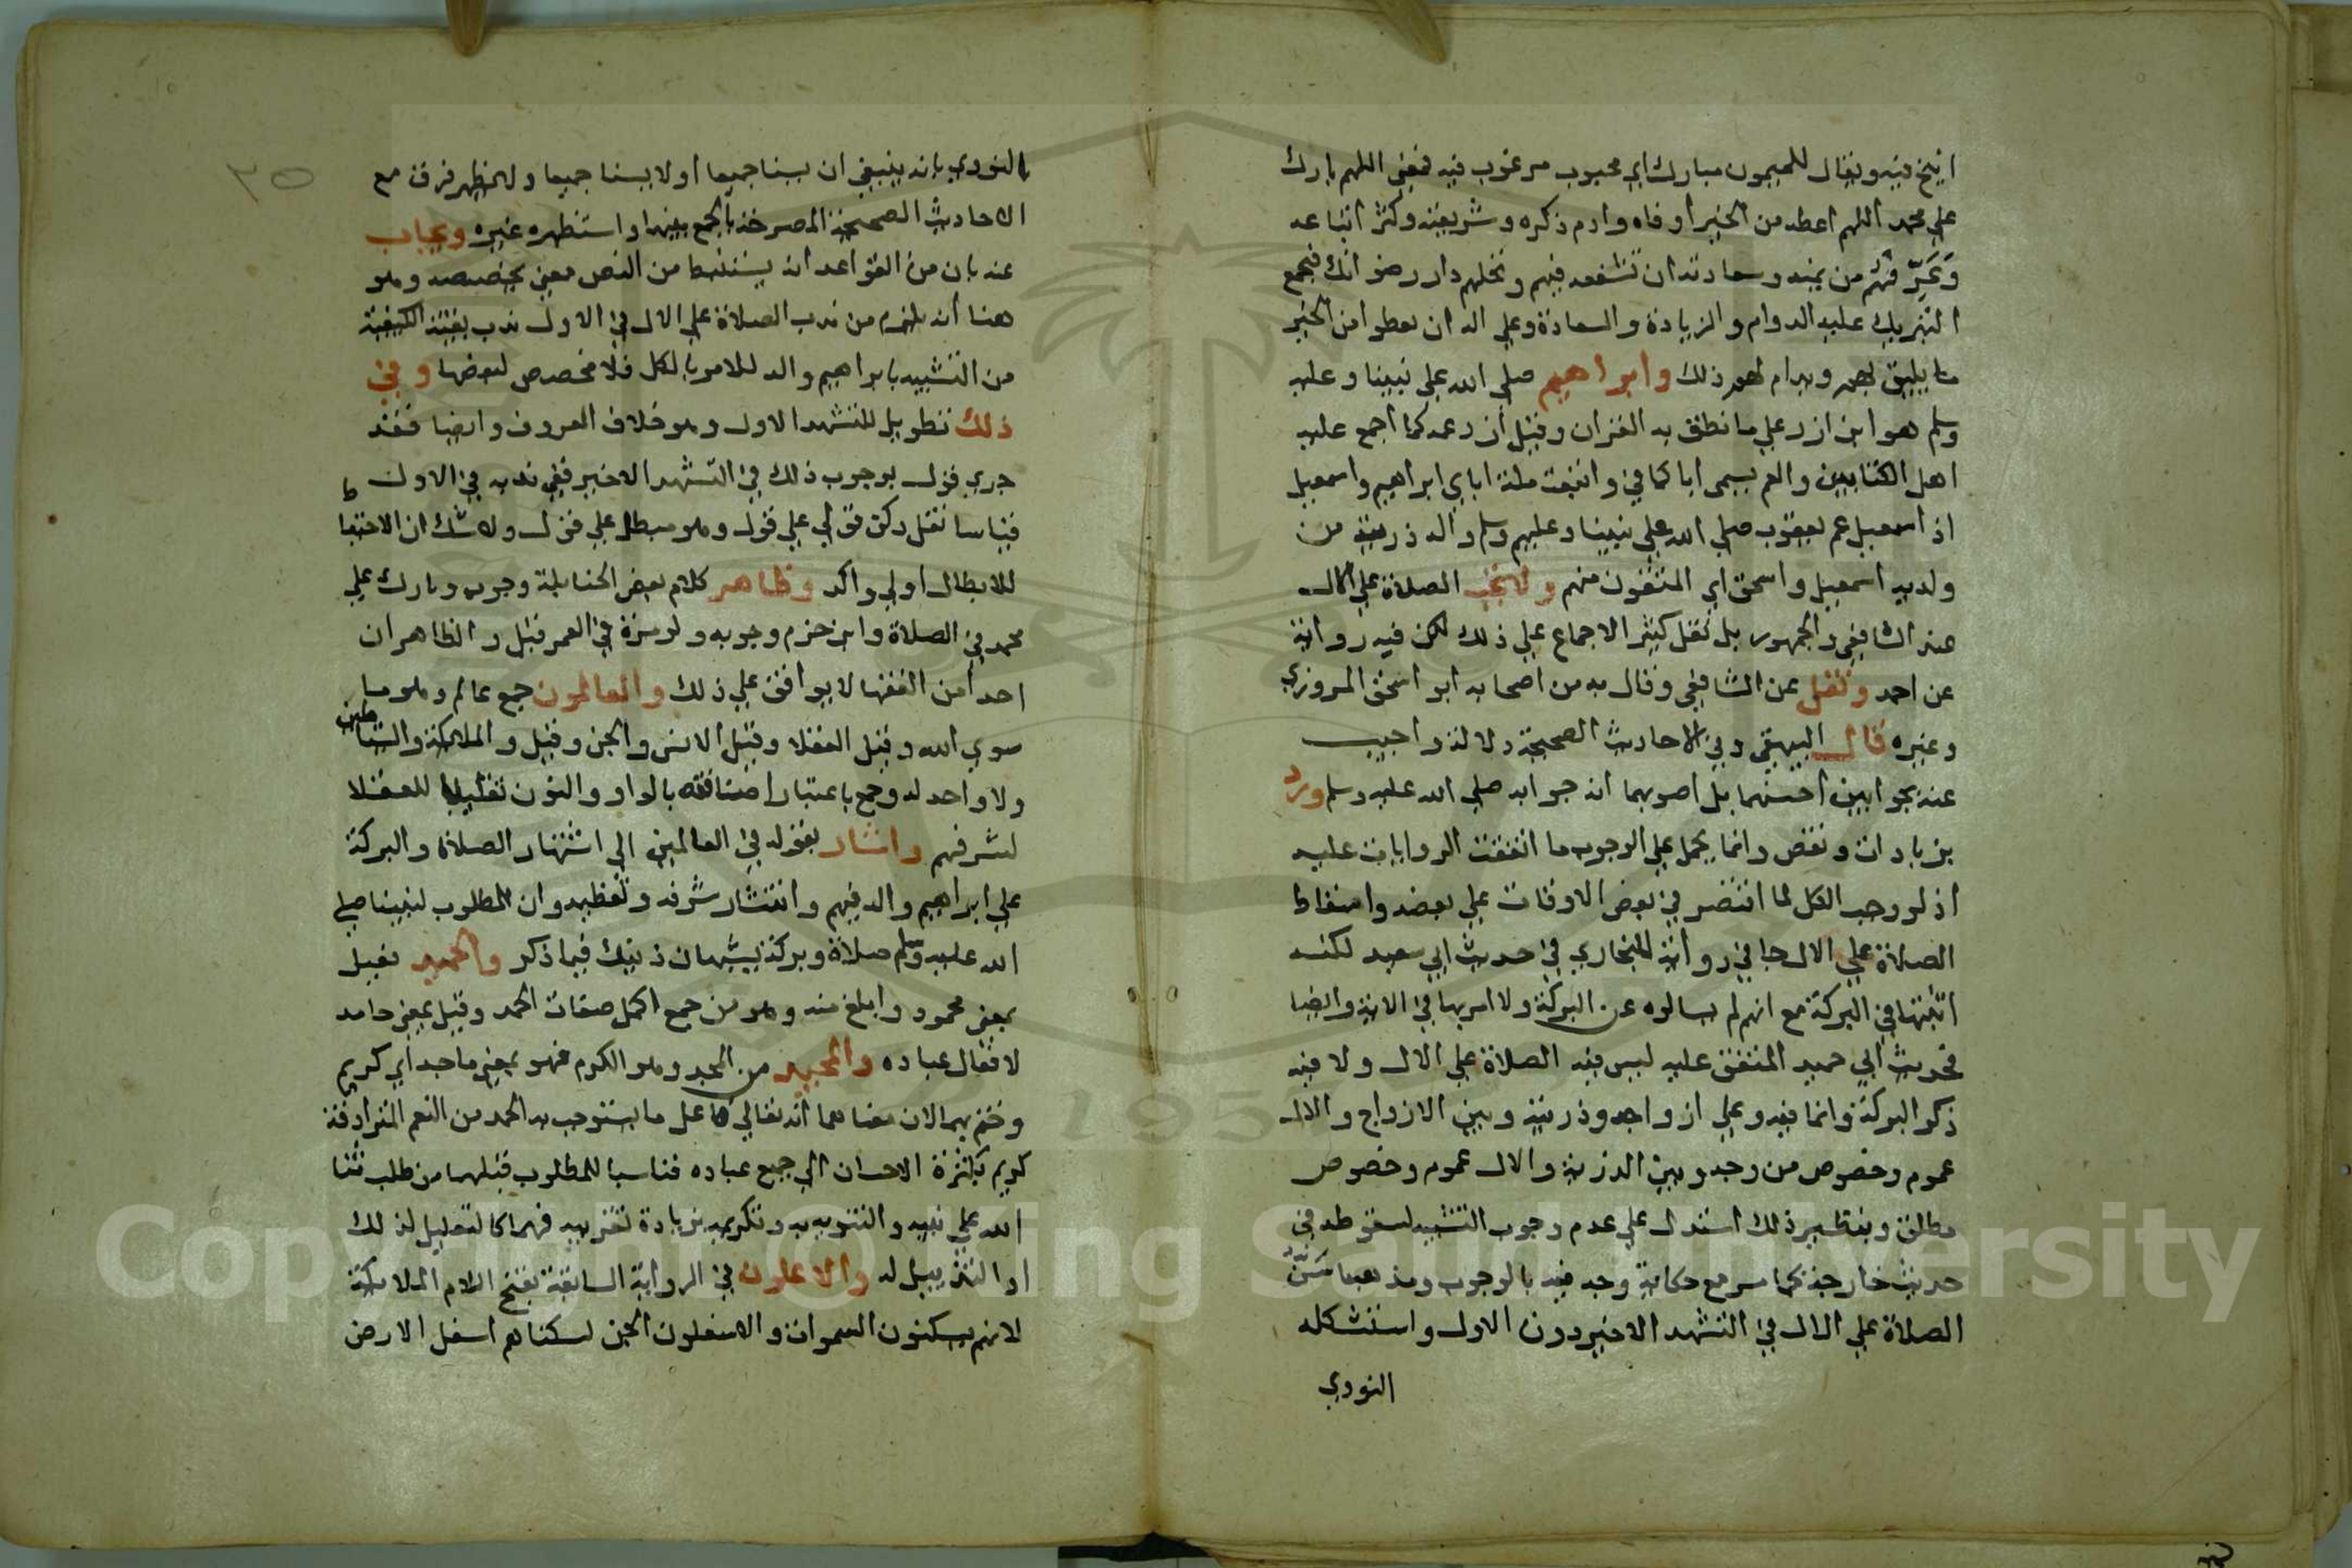 انيخ فيه ويقال للميمون مبارك اي محبوب مرغوب فيه فمعنى اللهم بارك
على محمد اللهم اعطه من الخير اوفاه وادم ذكره وشريعته وكثر اتباعه
من يمنه وسعادته ان تشفعه فيهم وتحلهم دار رضوانك فيجمع
التبريك عليه الدوام والزيادة والسعادة وعلى اله ان يعطوا من الخير
ما يليق بهم ويدام لهم ذلك وابراهيم صلى الله على نبينا وعليه
وسلم هو ابن ازر على ما نطق به القران وقيل ازر عمه كما اجمع عليه
اهل الكتابين والعم يسمى ابا كما في واتبعت ملة اباي ابراهيم واسمعيل
اذ اسمعيل عم يعقوب صلى الله على نبينا وعليهم وسلم واله ذريته من
ولديه اسمعيل واسحق اي المتقون منهم ولا تجب الصلاة على الال
عند الشافعي والجمهور بل نقل كثير الاجماع على ذلك لكن فيه رواية
عن احمد ونقل عن الشافعي وقال به من اصحابه ابو اسحق المروزي
وغيره قال البيهقي وفي الاحاديث الصحيحة دلالة واجيب
عنه بجوابين احسنهما بل اصوبهما ان جوابه صلى الله عليه وسلم ورد
بزيادات ونقص وانما يحمل على الوجوب ما اتفقت الروايات عليه
اذ لو وجب الكل لما اقتصر في بعض الاوقات على بعضه واسقاط
الصلاة على الال جا في رواية للبخاري في حديث ابي سعيد لكنه
اثبتها في البركة مع انهم لم يسالوه عن البركة ولا امر بها في الاية وايضا
فحديث ابي حميد المتفق عليه ليس فيه الصلاة على الال ولا فيه
ذكر البركة وانما فيه وعلى ازواجه وذريته وبين الازواج والال
عموم وخصوص من وجه وبين الذرية والال عموم وخصوص
مطلق وبنظير ذلك استدل على عدم وجوب التشبيه لسقوطه في
حديث خارجة كما مر مع حكاية وجه فيه بالوجوب ومذهبنا
الصلاة على الال في التشهد الاخير دون الاول واستشكله
النووي
٣٥
النووي بانه ينبغي ان يسنا جميعا اولا يسنا جميعا ولا يظهر فرق مع
الاحاديث الصحيحة المصرحة بالجمع بينهما واستظهره غيره ويجاب
عنه بان من القواعد انه يستنبط من النص معنى يخصصه وهو
هنا انه يلزم من ندب الصلاة على الال في الاول ندب بقية الكيفية
من التشبيه بابراهيم واله للامر بالكل فلا مخصص لبعضها وفي
ذلك تطويل للتشهد الاول وهو خلاف المعروف وايضا فقد
جرى قول بوجوب ذلك في التشهد الاخير ففي ندبه في الاول
قياسا نقل ركن قولي على قول وهو مبطل على قول ولا شك ان الاحتياط
للابطال اولى واكد وظاهر كلام بعض الحنابلة وجوب وبارك على
محمد في الصلاة وابن حزم وجوبه ولو مرة في العمر قيل والظاهر ان
احدا من الفقها لا يوافق على ذلك والعالمون جمع عالم وهو ما
سوى الله وقيل العقلا وقيل الانس والجن وقيل والملائكة والشياطين
ولا واحد له وجمع باعتبار اصنافه بالواو والنون تغليبا للعقلا
لشرفهم واشار بقوله في العالمين الى اشتهار الصلاة والبركة
على ابراهيم واله فيهم وانتشار شرفه وتعظيمه وان المطلوب لنبينا صلى
الله عليه وسلم صلاة وبركة يشبهان ذينك فيما ذكر والحميد فعيل
بمعنى محمود وابلغ منه وهو من جمع اكمل صفات الحمد وقيل بمعنى حامد
لافعال عباده والمجيد من المجد وهو الكرم فهو بمعنى ماجد اي كريم
وختم بهما لان معناهما انه تعالى فاعل ما يستوجب به الحمد من النعم المترادفة
كريم بكثرة الاحسان الى جميع عباده فناسبا المطلوب قبلهما من طلب ثنا
الله على نبيه والتنويه به وتكريمه بزيادة تقريبه فهما كالتعليل لذلك
او التذييل له والاعلون في الرواية السابقة بفتح اللام الملائكة
لانهم يسكنون السموات والاسفلون الجن لسكناهم اسفل الارض
Copyright © King Saud University
1957